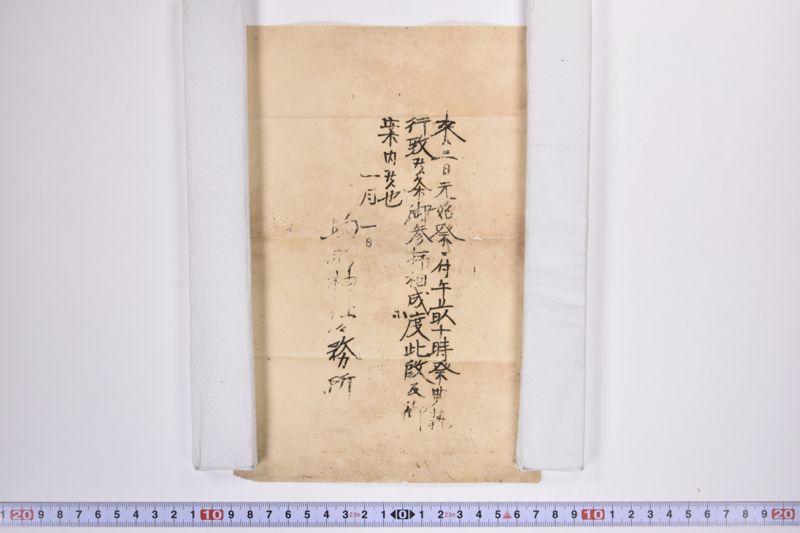 来三日元始祭ニ付午前十時祭典執
行致候条御参拝相成度此段及御
案内候也
一月一日
社務所